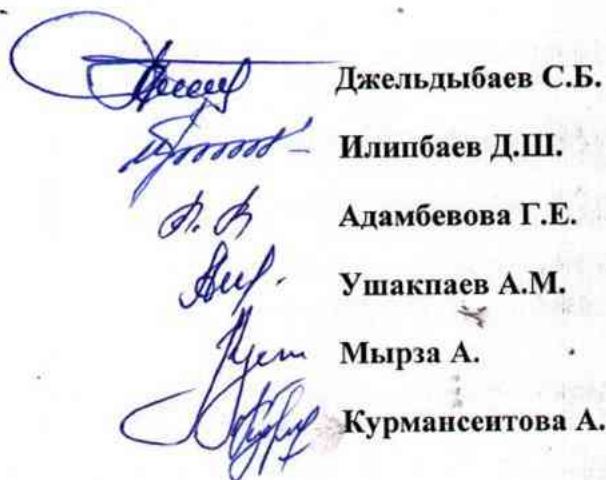 Джельдыбаев С.Б.
Илипбаев Д.Ш.
Адамбевова Г.Е.
Ушакпаев А.М.
Мырза А.
Курмансеитова А.